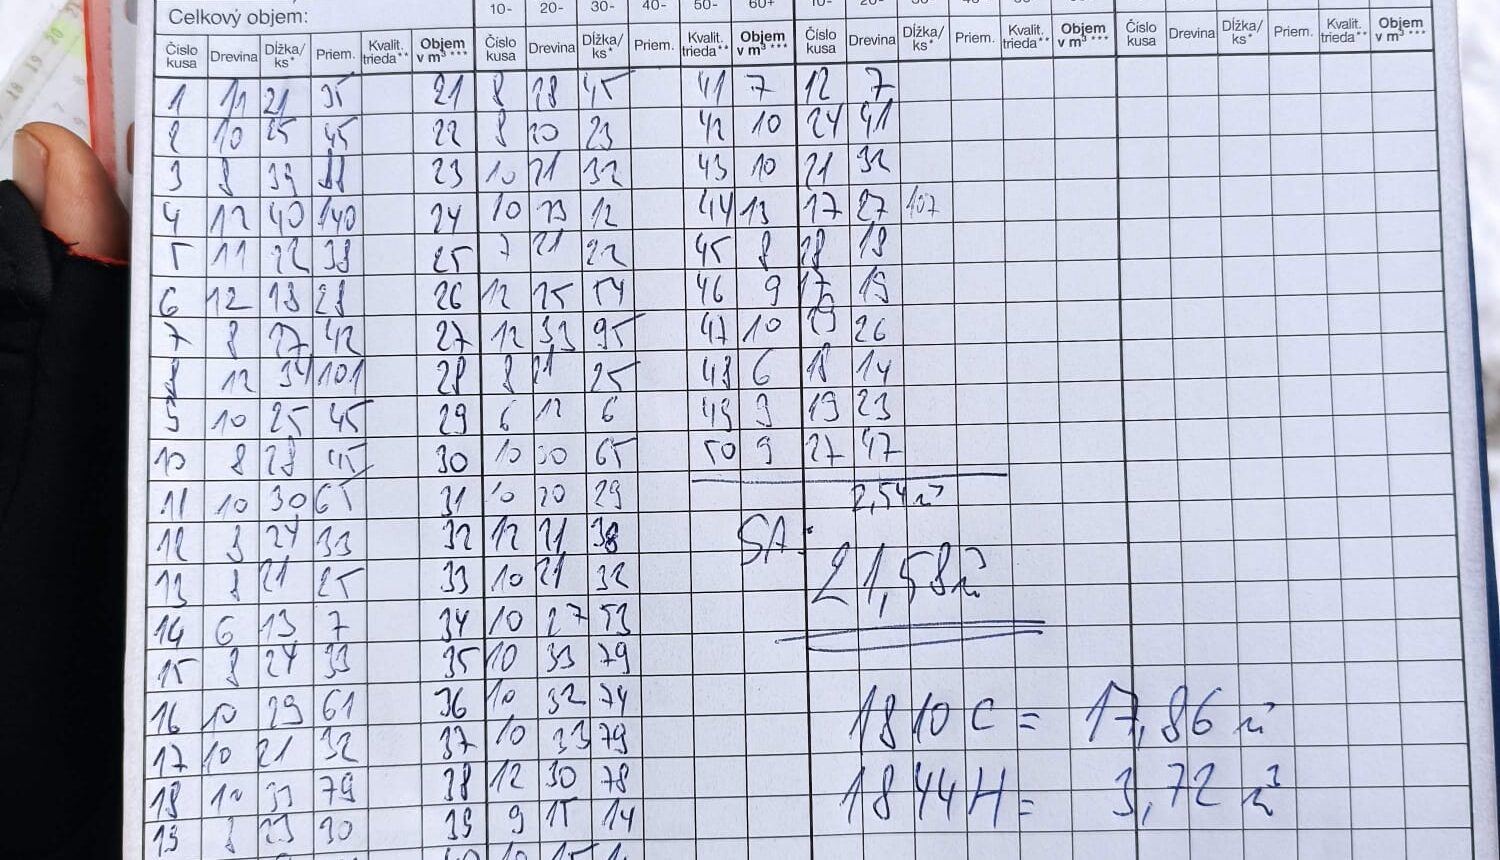 Celkový objem: 10- 20- 30- 40- 50- 60+
Číslo kusa Drevina Dĺžka/ks* Priem. Kvalit. trieda** Objem v m³*** Číslo kusa Drevina Dĺžka/ks* Priem. Kvalit. trieda** Objem v m³*** Číslo kusa Drevina Dĺžka/ks* Priem. Kvalit. trieda** Objem v m³*** Číslo kusa Drevina Dĺžka/ks* Priem. Kvalit. trieda** Objem v m³***
1 11 21 35 21 8 28 45 41 7 12 7
2 10 25 45 22 8 20 23 42 10 24 41
3 8 39 88 23 10 21 32 43 10 21 32
4 12 40 140 24 10 13 12 44 13 17 27 107
5 11 22 38 25 7 21 22 45 8 28 18
6 12 18 28 26 12 25 54 46 9 17 19
7 8 27 42 27 12 33 95 47 10 19 26
8 12 34 101 28 8 21 25 48 6 18 14
9 10 25 45 29 6 12 6 49 9 19 23
10 8 28 45 30 10 30 65 50 9 27 47
11 10 30 65 31 10 20 29 2,54 m³
12 8 24 33 32 12 21 38 SA:
13 8 21 25 33 10 21 32 21,58 m³
14 6 13 7 34 10 27 53
15 8 24 33 35 10 33 79
16 10 29 61 36 10 32 74 1810 C = 17,86 m³
17 10 21 32 37 10 33 79
18 10 33 79 38 12 30 78 1844 H = 3,72 m³
19 8 23 30 39 9 15 14
40 10 15